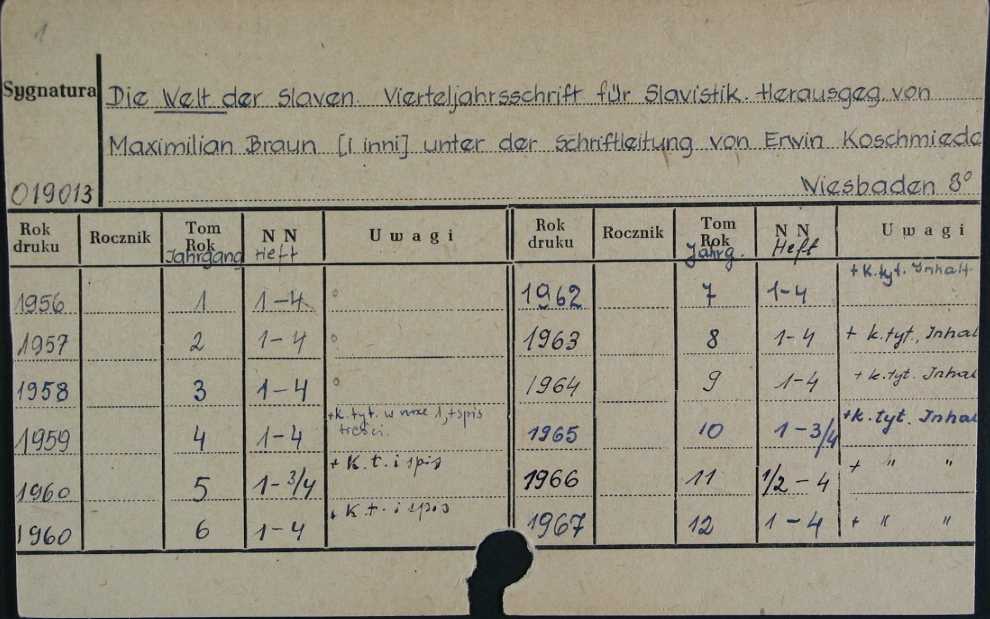 1
Sygnatura
Die Welt der Slaven. Vierteljahrsschrift für Slavistik. Herausgeg. von
Maximilian Braun [i inni] unter der Schriftleitung von Erwin Koschmiede
019013 Wiesbaden 8°
Rok druku Rocznik Tom Rok Jahrgang NN Heft Uwagi Rok druku Rocznik Tom Rok Jahrg. NN Heft Uwagi
1956 1 1-4 ° 1962 7 1-4 + k.tyt. Inhalt
1957 2 1-4 ° 1963 8 1-4 + k.tyt., Inhal
1958 3 1-4 ° 1964 9 1-4 + k.tyt. Inhal
1959 4 1-4 +k. tyt. w nrze 1, +spis treści. 1965 10 1-3/4 +k. tyt. Inhal
1960 5 1-3/4 + k.t. i spis 1966 11 1/2-4 + " "
1960 6 1-4 + k.t. i spis 1967 12 1-4 + " "